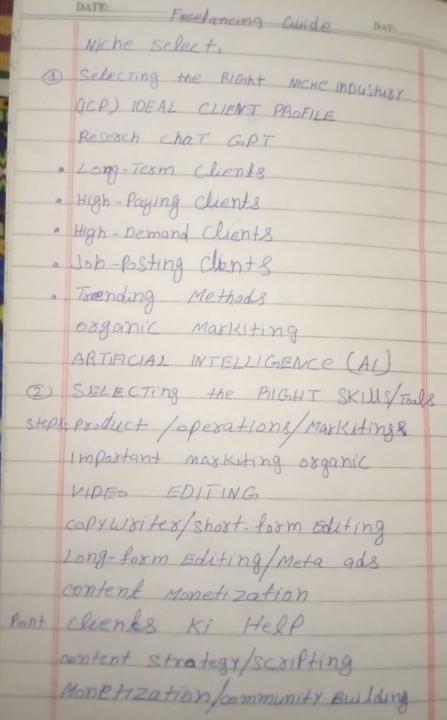 DATE:
DAY:
Freelancing Guide
Niche Select.
① Selecting the RIGHT NICHE INDUSTURY
(ICP) IDEAL CLIENT PROFILE
Reserch ChaT GPT
• Long-Term Clients
• High-Paying Clients
• High-Demand Clients
• Job-Posting Clints
• Treending Methods
organic Markiting
ARTIFICIAL INTELLIGENCE (AI)
② SELECTing the RIGHT SKills/Tools
Steps: Product /operations/Markitings
Important markiting organic
VIDEO EDITING
Copywriter/short-form Editing
Long-form Editing/Meta ads
content Monetization
Point clients Ki Help
content strategy/scripting
Monetization/community Building